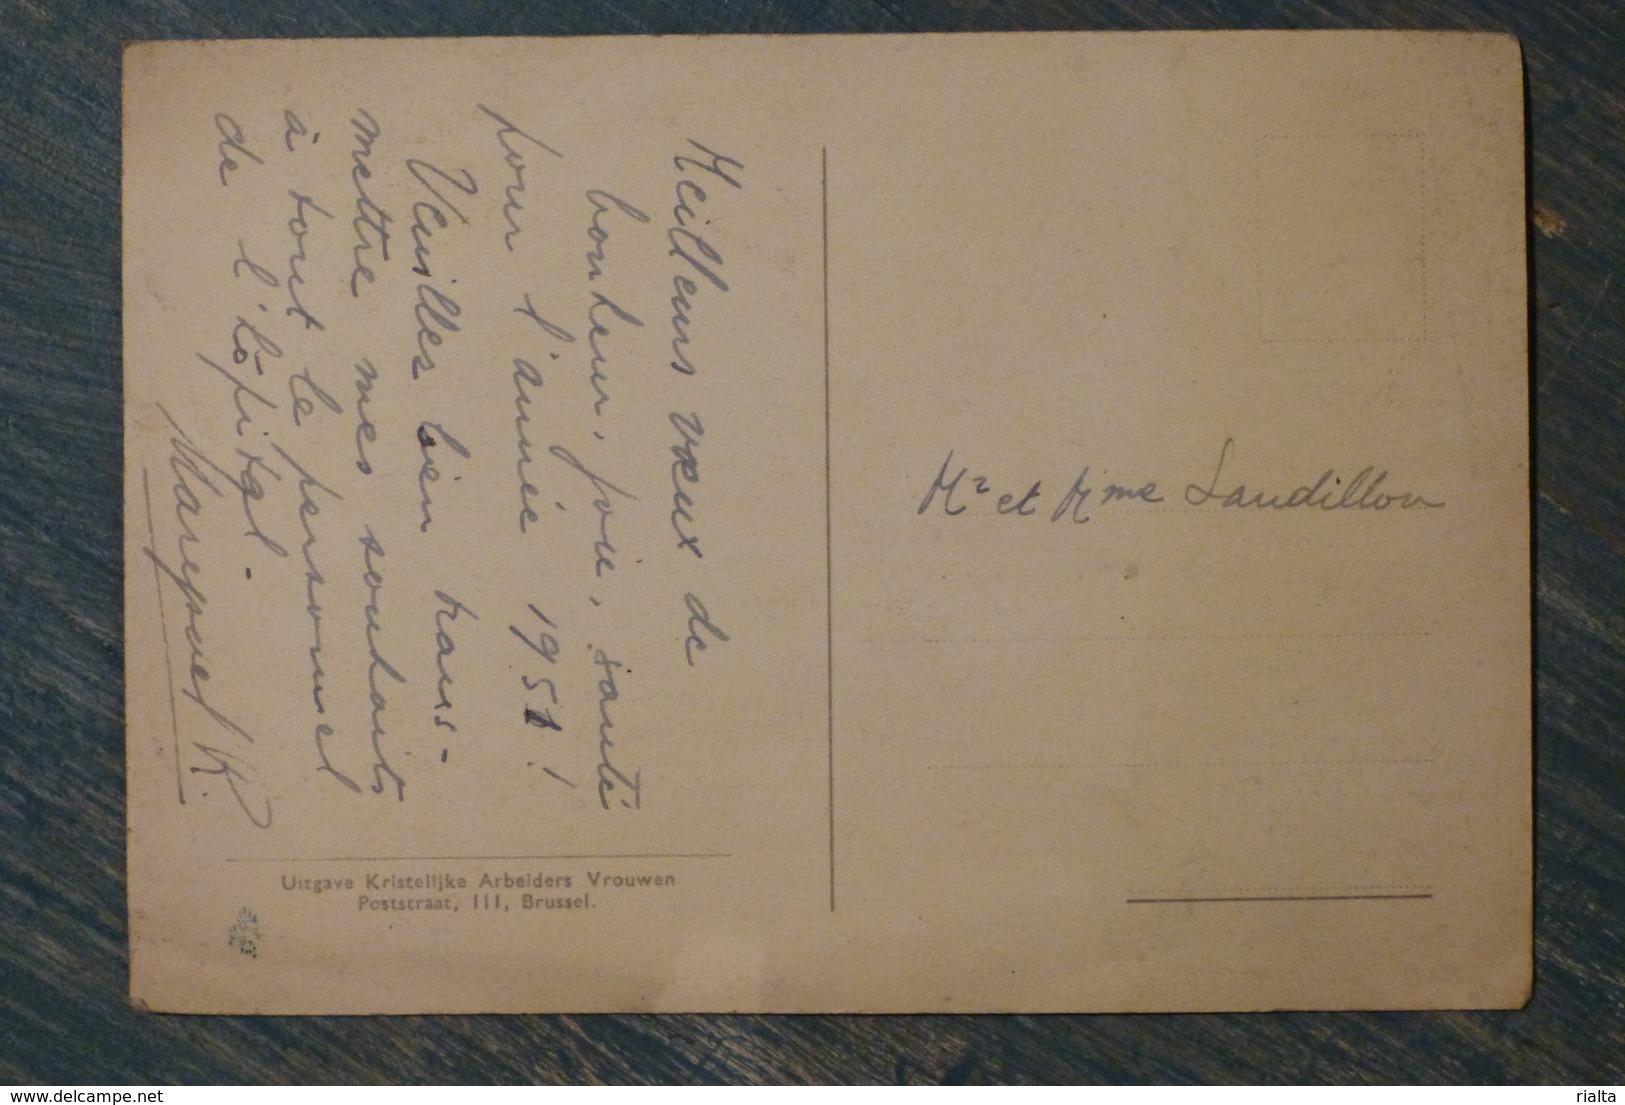 Meilleurs vœux de
bonheur, joie, santé
pour l'année 1951!
Veuilles bien trans-
mettre mes souhaits
à tout le personnel
de l'hôpital.
K.
Uitgave Kristelijke Arbeiders Vrouwen
Poststraat, 111, Brussel.
Mr et Mme Landillon
delcampe.net
rialta